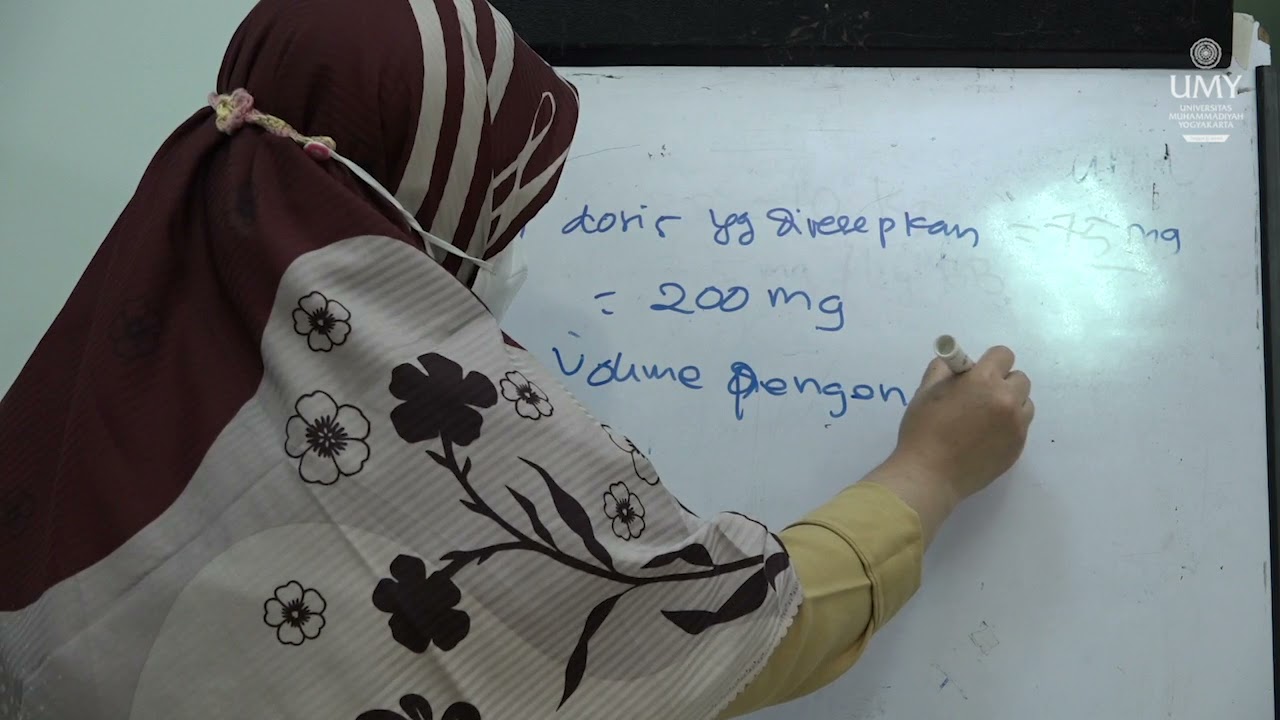 UMY
UNIVERSITAS
MUHAMMADIYAH
YOGYAKARTA
dosis yg diresepkan = 75 mg
= 200 mg
Volume pengen